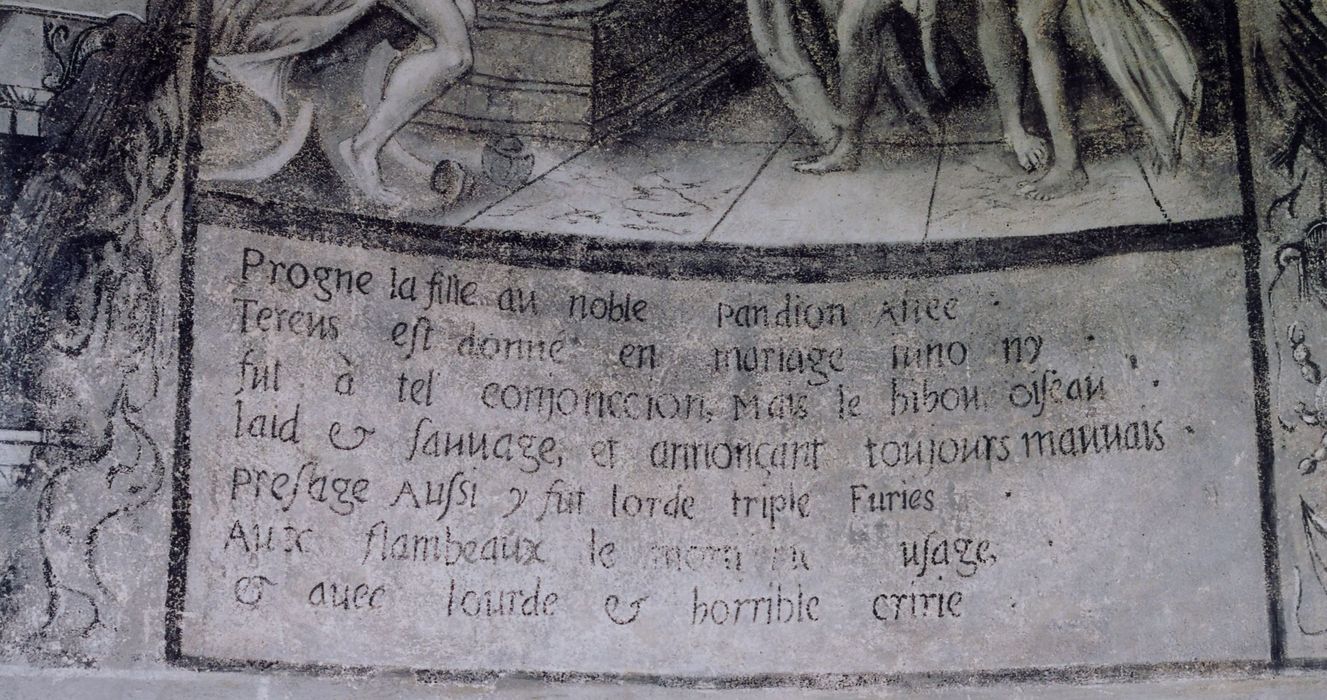 Progne la fille au noble Pandion Auec
Tereus eſt donné en mariage iuno ny
fut à tel conjonccion, Mais le hibou oiſeau
laid & ſauuage, et annonçant toujours mauuais
preſage Auſsi y fut lorde triple Furies
Aux flambeaux le usage
& auec lourde & horrible cririe